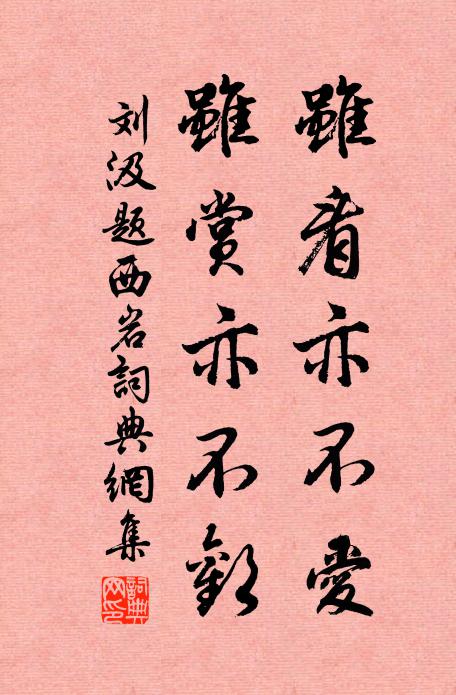 雖看亦不愛
雖賞亦不歡
刘汲题西岩詞典網集
詞典
网印